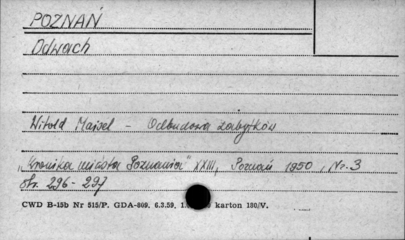 POZNAŃ
Odwach
Witold Maisel - Odbudowa zabytków
"Kronika miasta Poznania" XXIII, Poznań 1950, Nr. 3
str. 296-297
CWD B-15b Nr 515/P. GDA-809. 6.3.59. karton 180/V.